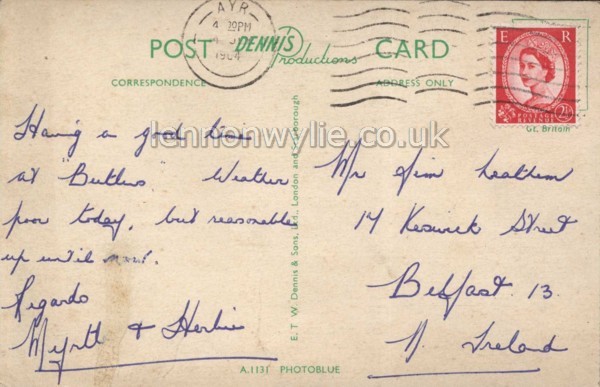 AYR
1964
POST DENNIS Productions CARD
E R
POSTAGE REVENUE
2½
Gt. Britain
CORRESPONDENCE
ADDRESS ONLY
lennonwylie.co.uk
Having a good time
at "Butlins" Weather
poor today, but reasonable
up until now.
Regards
Myrtle & Herbie
E. T. W. Dennis & Sons, Ltd., London and Scarborough
Mr Jim Leathem
17 Keswick Street
Belfast 13.
N. Ireland
A.1131 PHOTOBLUE